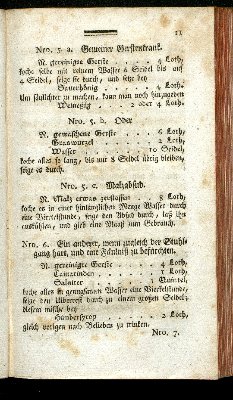 11
Nro. 5. a. Gemeiner Gerstentrank.
R. gereinigte Gerste . . . . 4 Loth,
koche selbe mit reinem Wasser 6 Seidel bis auf
4 Seidel, seige sie durch, und setze bey
Sauerhönig . . . . 4 Loth,
Um säulichter zu machen, kann man noch hinzugeben
Weinessig . . 2 oder 4 Loth.
Nro. 5. b. Oder
R. gewaschene Gerste . . . 6 Loth,
Graswurzel . . . 2 Loth,
Wasser . . . . 10 Seidel,
koche alles so lang, bis nur 8 Seidel übrig bleiben,
seige es durch.
Nro. 5. c. Malzabsud.
R. Malz etwas zerstossen . . 8 Loth,
koche es in einer hinlänglichen Menge Wasser durch
eine Viertelstunde, seige den Absud durch, laß ihn
auskühlen, und gieb eine Maaß zum Gebrauch.
Nro. 6. Ein anderer, wenn zugleich der Stuhl-
gang hart, und eine Fäulniß zu befürchten.
R. gereinigte Gerste . . . 4 Loth,
Tamarinden . . . 1 Loth,
Salniter . . . 1 Quintel,
koche alles in genugsamen Wasser eine Viertelstunde,
seige den Ueberrest durch zu einem großen Seidel;
diesem mische bey
Himbersyrop . . . . 2 Loth,
gleich vorigen nach Belieben zu trinken.
Nro. 7.